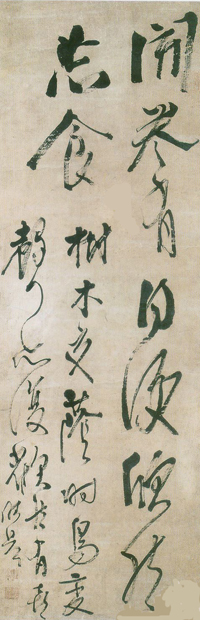 開卷有得便欣然
忘食
樹木交蔭時鳥變
聲亦復歡然有喜